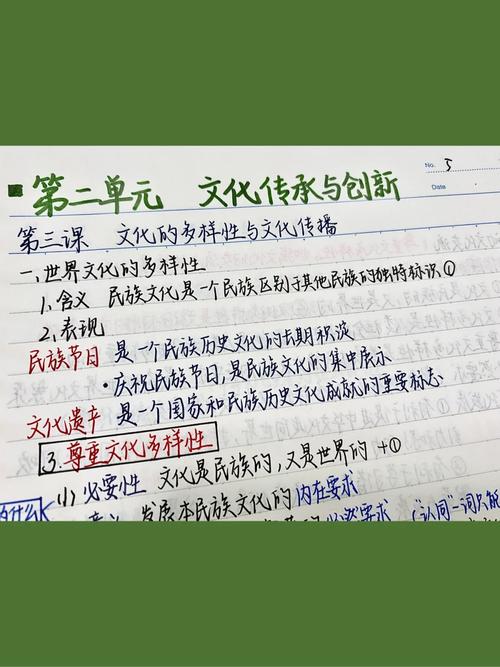 No. 5
Date
第二单元 文化传承与创新
第三课 文化的多样性与文化传播
一、世界文化的多样性
1、含义 民族文化是一个民族区别于其他民族的独特标识①
2、表现
民族节日 是一个民族历史文化的长期积淀
·庆祝民族节日,是民族文化的集中展示
文化遗产 是一个国家和民族历史文化成就的重要标志
3、尊重文化多样性
(1)必要性 文化是民族的,又是世界的 +①
发展本民族文化的内在要求
必然要求 ("认同"一词只能